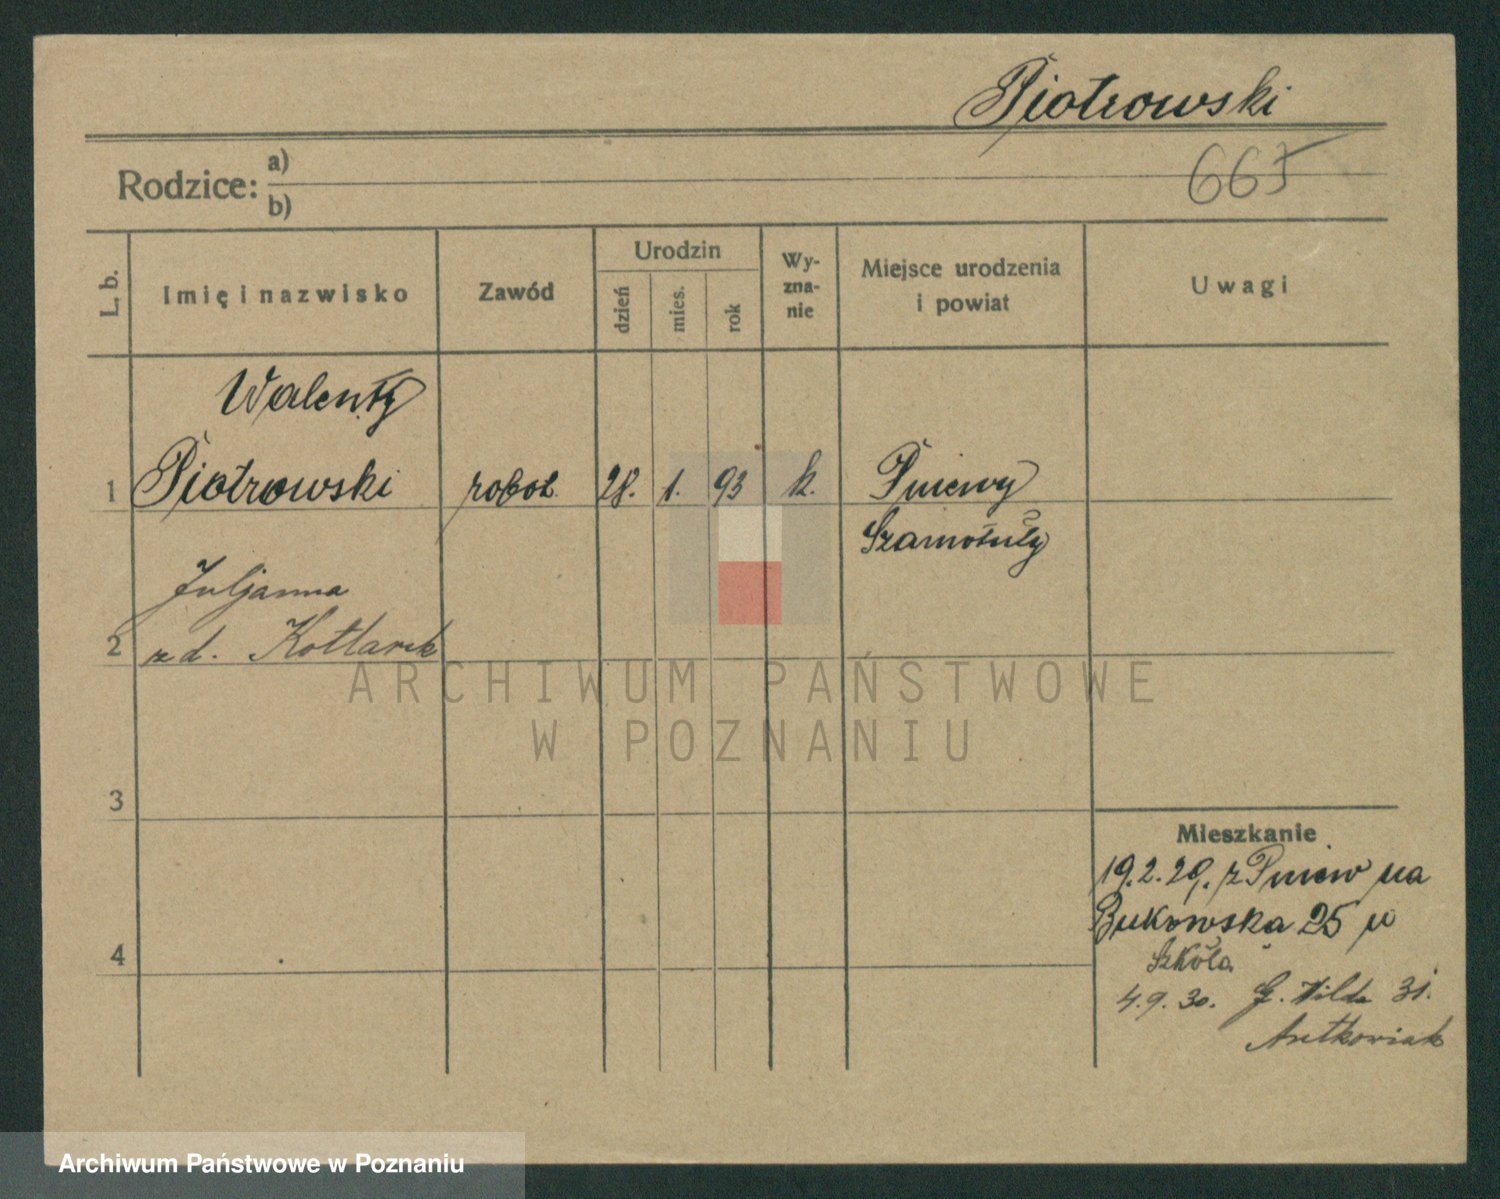 Piotrowski
665
Rodzice: a)
b)
L. b.
Imię i nazwisko
Zawód
Urodzin
dzień
mies.
rok
Wy-
zna-
nie
Miejsce urodzenia
i powiat
Uwagi
Walenty
1 Piotrowski robot. 28. 1. 93 k. Pniewy
Szamotuły
Juljanna
2 z d. Kotlarek
ARCHIWUM PAŃSTWOWE
W POZNANIU
3
Mieszkanie
19.2.29. z Pniew na
Bukowska 25 u
Szkoła
4
4.9.30. G. Wilda 31.
Antkowiak
Archiwum Państwowe w Poznaniu